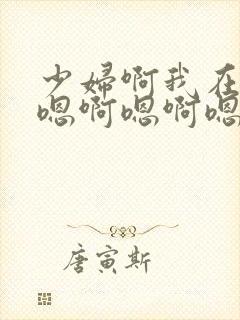 少妇啊我在
嗯啊嗯啊嗯
唐寅斯